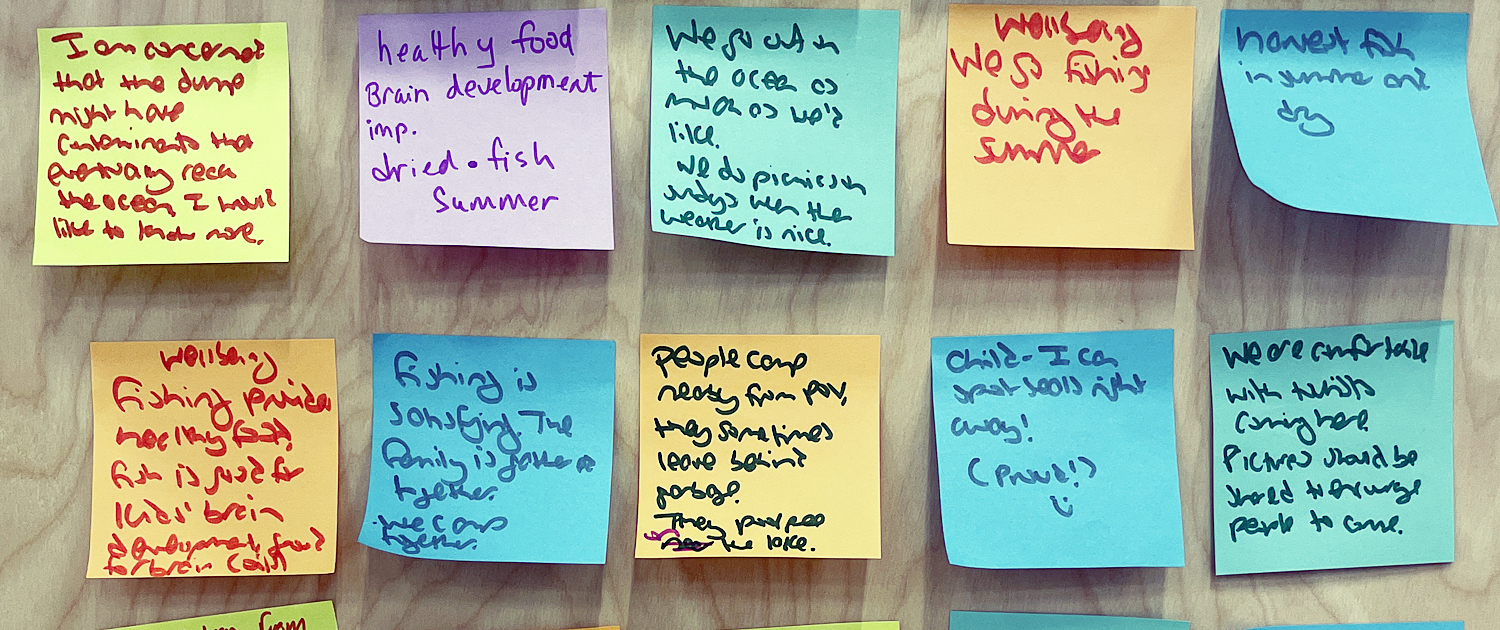 I am concerned
that the dump
might have
contaminants that
eventually reach
the ocean, I would
like to know more.
healthy food
Brain development
imp.
dried • fish
Summer
We go out in
the ocean as
much as we'd
like.
We do picnics on
sundays when the
weather is nice.
Wellbeing
We go fishing
during the
summer
harvest fish
in summer and
dry
Wellbeing
Fishing provides
healthy food,
fish is good for
kids' brain
development, good
for brain
Fishing is
satisfying. The
family is gathered
together.
-We camp
together.
People camp
nearby from POV,
they sometimes
leave behind
garbage.
They
the lake.
Child - I can
spot seals right
away!
(Proud!)
We are comfortable
with tourists
coming here.
Pictures should be
shared to encourage
people to come.
from